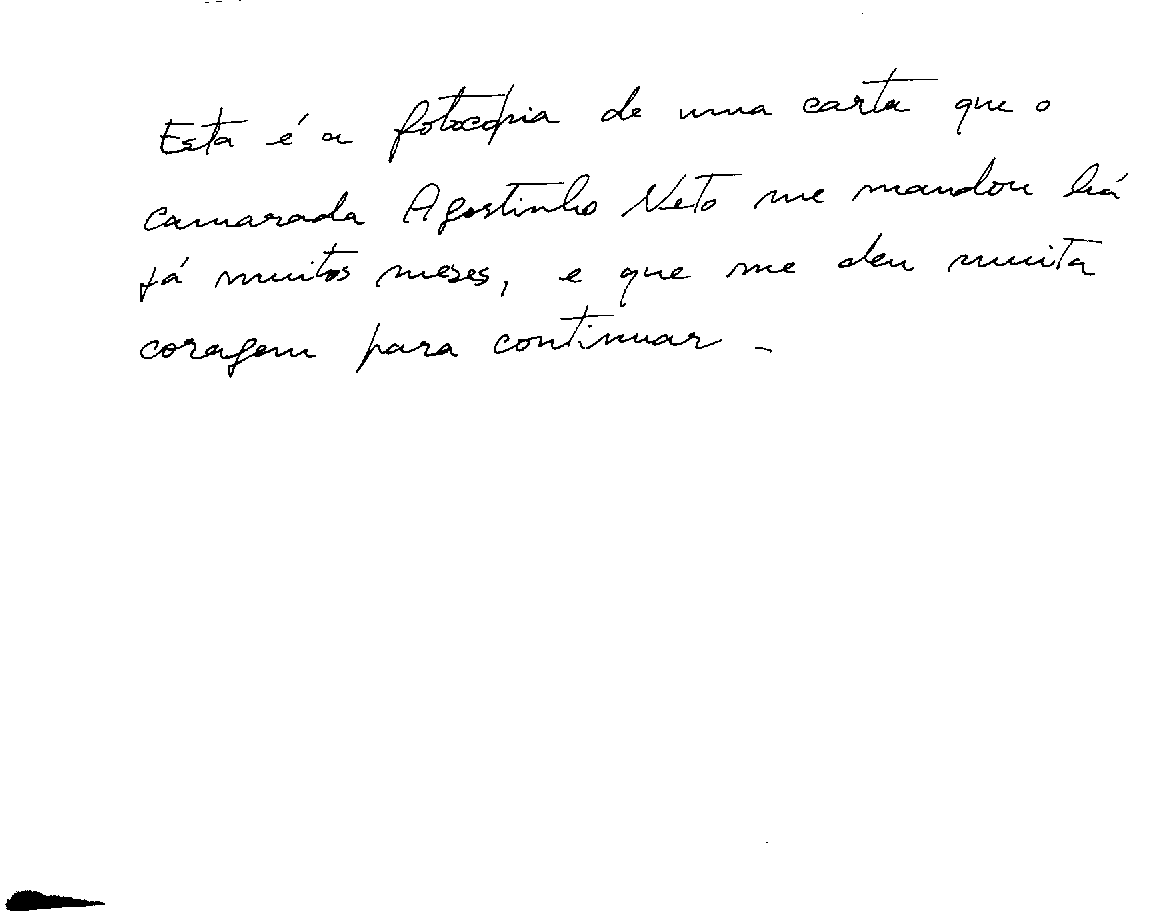 Esta é a fotocópia de uma carta que o
camarada Agostinho Neto me mandou há
já muitos meses, e que me deu muita
coragem para continuar -